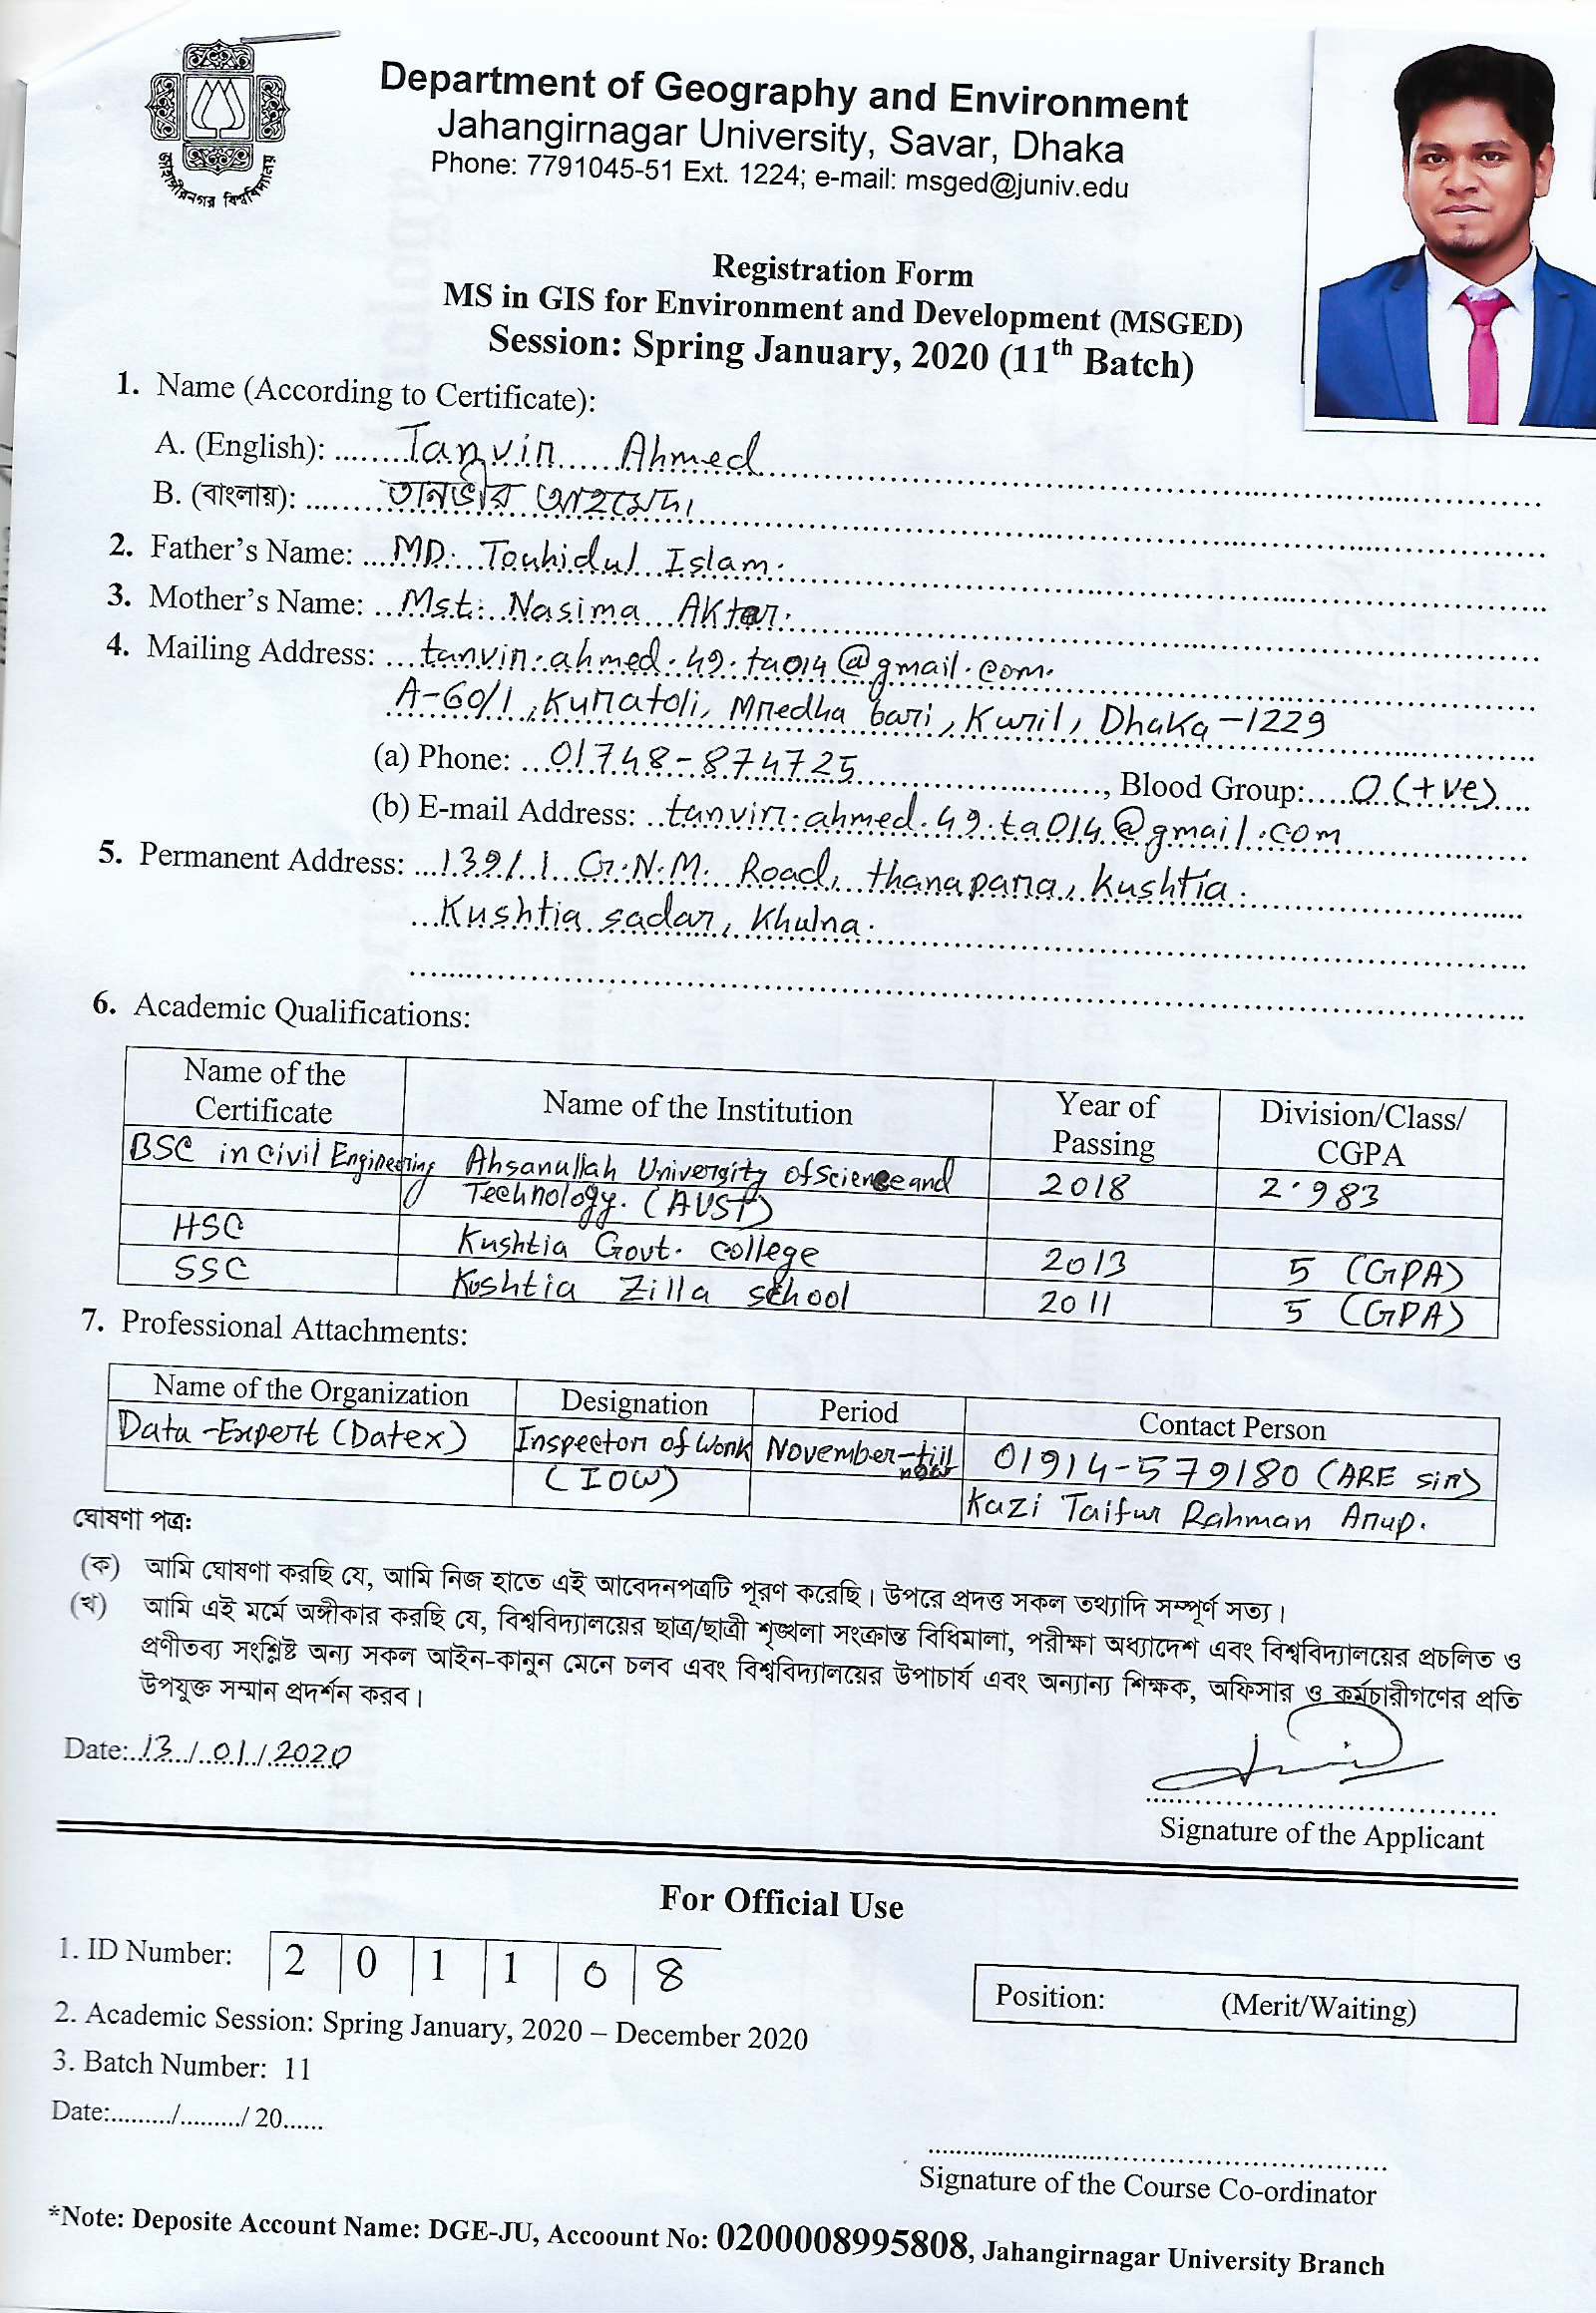 জাহাঙ্গীরনগর বিশ্ববিদ্যালয়
Department of Geography and Environment
Jahangirnagar University, Savar, Dhaka
Phone: 7791045-51 Ext. 1224; e-mail: msged@juniv.edu
Registration Form
MS in GIS for Environment and Development (MSGED)
Session: Spring January, 2020 (11th Batch)
1. Name (According to Certificate):
A. (English): Tanvir Ahmed
B. (বাংলায়): তানভীর আহমেদ।
2. Father's Name: MD. Touhidul Islam.
3. Mother's Name: Mst. Nasima Akter.
4. Mailing Address: tanvir.ahmed.49.ta014@gmail.com.
A-60/1, Kuratoli, Mredha bari, Kuril, Dhaka-1229
(a) Phone: 01748-874725, Blood Group: O (+ve)
(b) E-mail Address: tanvir.ahmed.49.ta014@gmail.com
5. Permanent Address: 139/1 G.N.M. Road, thanapara, Kushtia.
Kushtia sadar, Khulna.
6. Academic Qualifications:
Name of the Certificate Name of the Institution Year of Passing Division/Class/ CGPA
BSC in Civil Engineering Ahsanullah University of Science and Technology. (AUST) 2018 2.983
HSC Kushtia Govt. college 2013 5 (GPA)
SSC Kushtia Zilla school 2011 5 (GPA)
7. Professional Attachments:
Name of the Organization Designation Period Contact Person
Data-Expert (Datex) Inspector of Work November-till now 01914-579180 (ARE sir)
(IOW) Kazi Taifur Rahman Arup.
ঘোষণা পত্র:
(ক) আমি ঘোষণা করছি যে, আমি নিজ হাতে এই আবেদনপত্রটি পূরণ করেছি। উপরে প্রদত্ত সকল তথ্যাদি সম্পূর্ণ সত্য।
(খ) আমি এই মর্মে অঙ্গীকার করছি যে, বিশ্ববিদ্যালয়ের ছাত্র/ছাত্রী শৃঙ্খলা সংক্রান্ত বিধিমালা, পরীক্ষা অধ্যাদেশ এবং বিশ্ববিদ্যালয়ের প্রচলিত ও
প্রণীতব্য সংশ্লিষ্ট অন্য সকল আইন-কানুন মেনে চলব এবং বিশ্ববিদ্যালয়ের উপাচার্য এবং অন্যান্য শিক্ষক, অফিসার ও কর্মচারীগণের প্রতি
উপযুক্ত সম্মান প্রদর্শন করব।
Date: 13/01/2020
Signature of the Applicant
For Official Use
1. ID Number: 2 0 1 1 0 8
Position: (Merit/Waiting)
2. Academic Session: Spring January, 2020 – December 2020
3. Batch Number: 11
Date:........./........./ 20......
Signature of the Course Co-ordinator
*Note: Deposite Account Name: DGE-JU, Accoount No: 0200008995808, Jahangirnagar University Branch